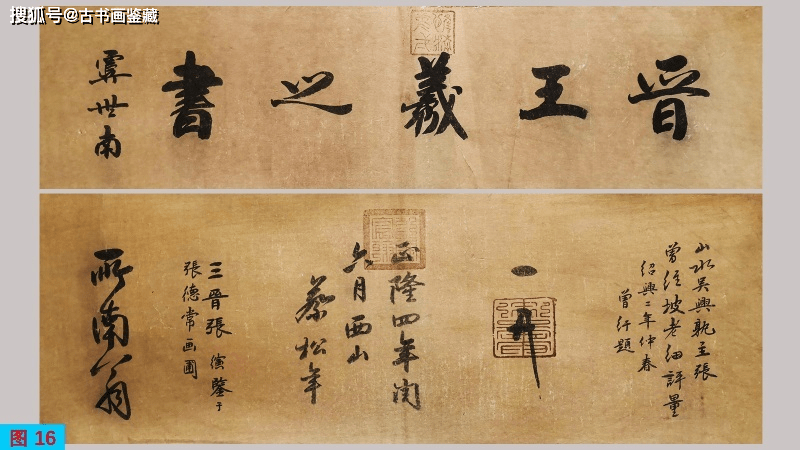 搜狐号@古书画鉴藏
晋王羲之書
虞世南
山水吴興孰主張
曾经坡老細評量
紹興二年仲春
曾紆題
正隆四年閏
六月西山
蔡松年
三晋張演鑒于
張德常画圃
所南翁
图 16